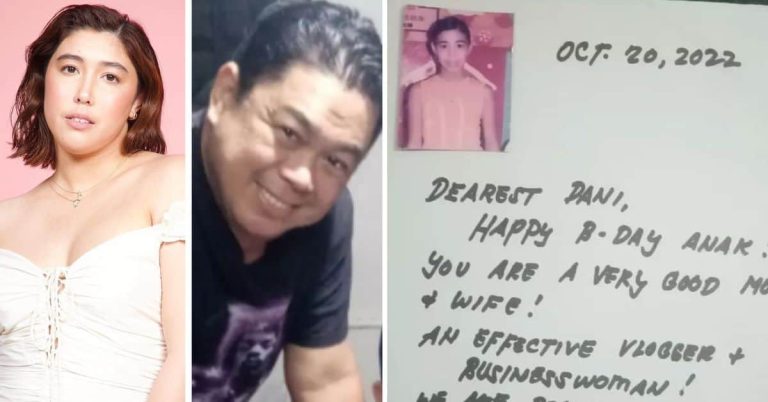 OCT. 20, 2022
DEAREST DANI,
HAPPY B-DAY ANAK!
YOU ARE A VERY GOOD
& WIFE!
AN EFFECTIVE VLOGGER &
BUSINESSWOMAN!
WE ARE